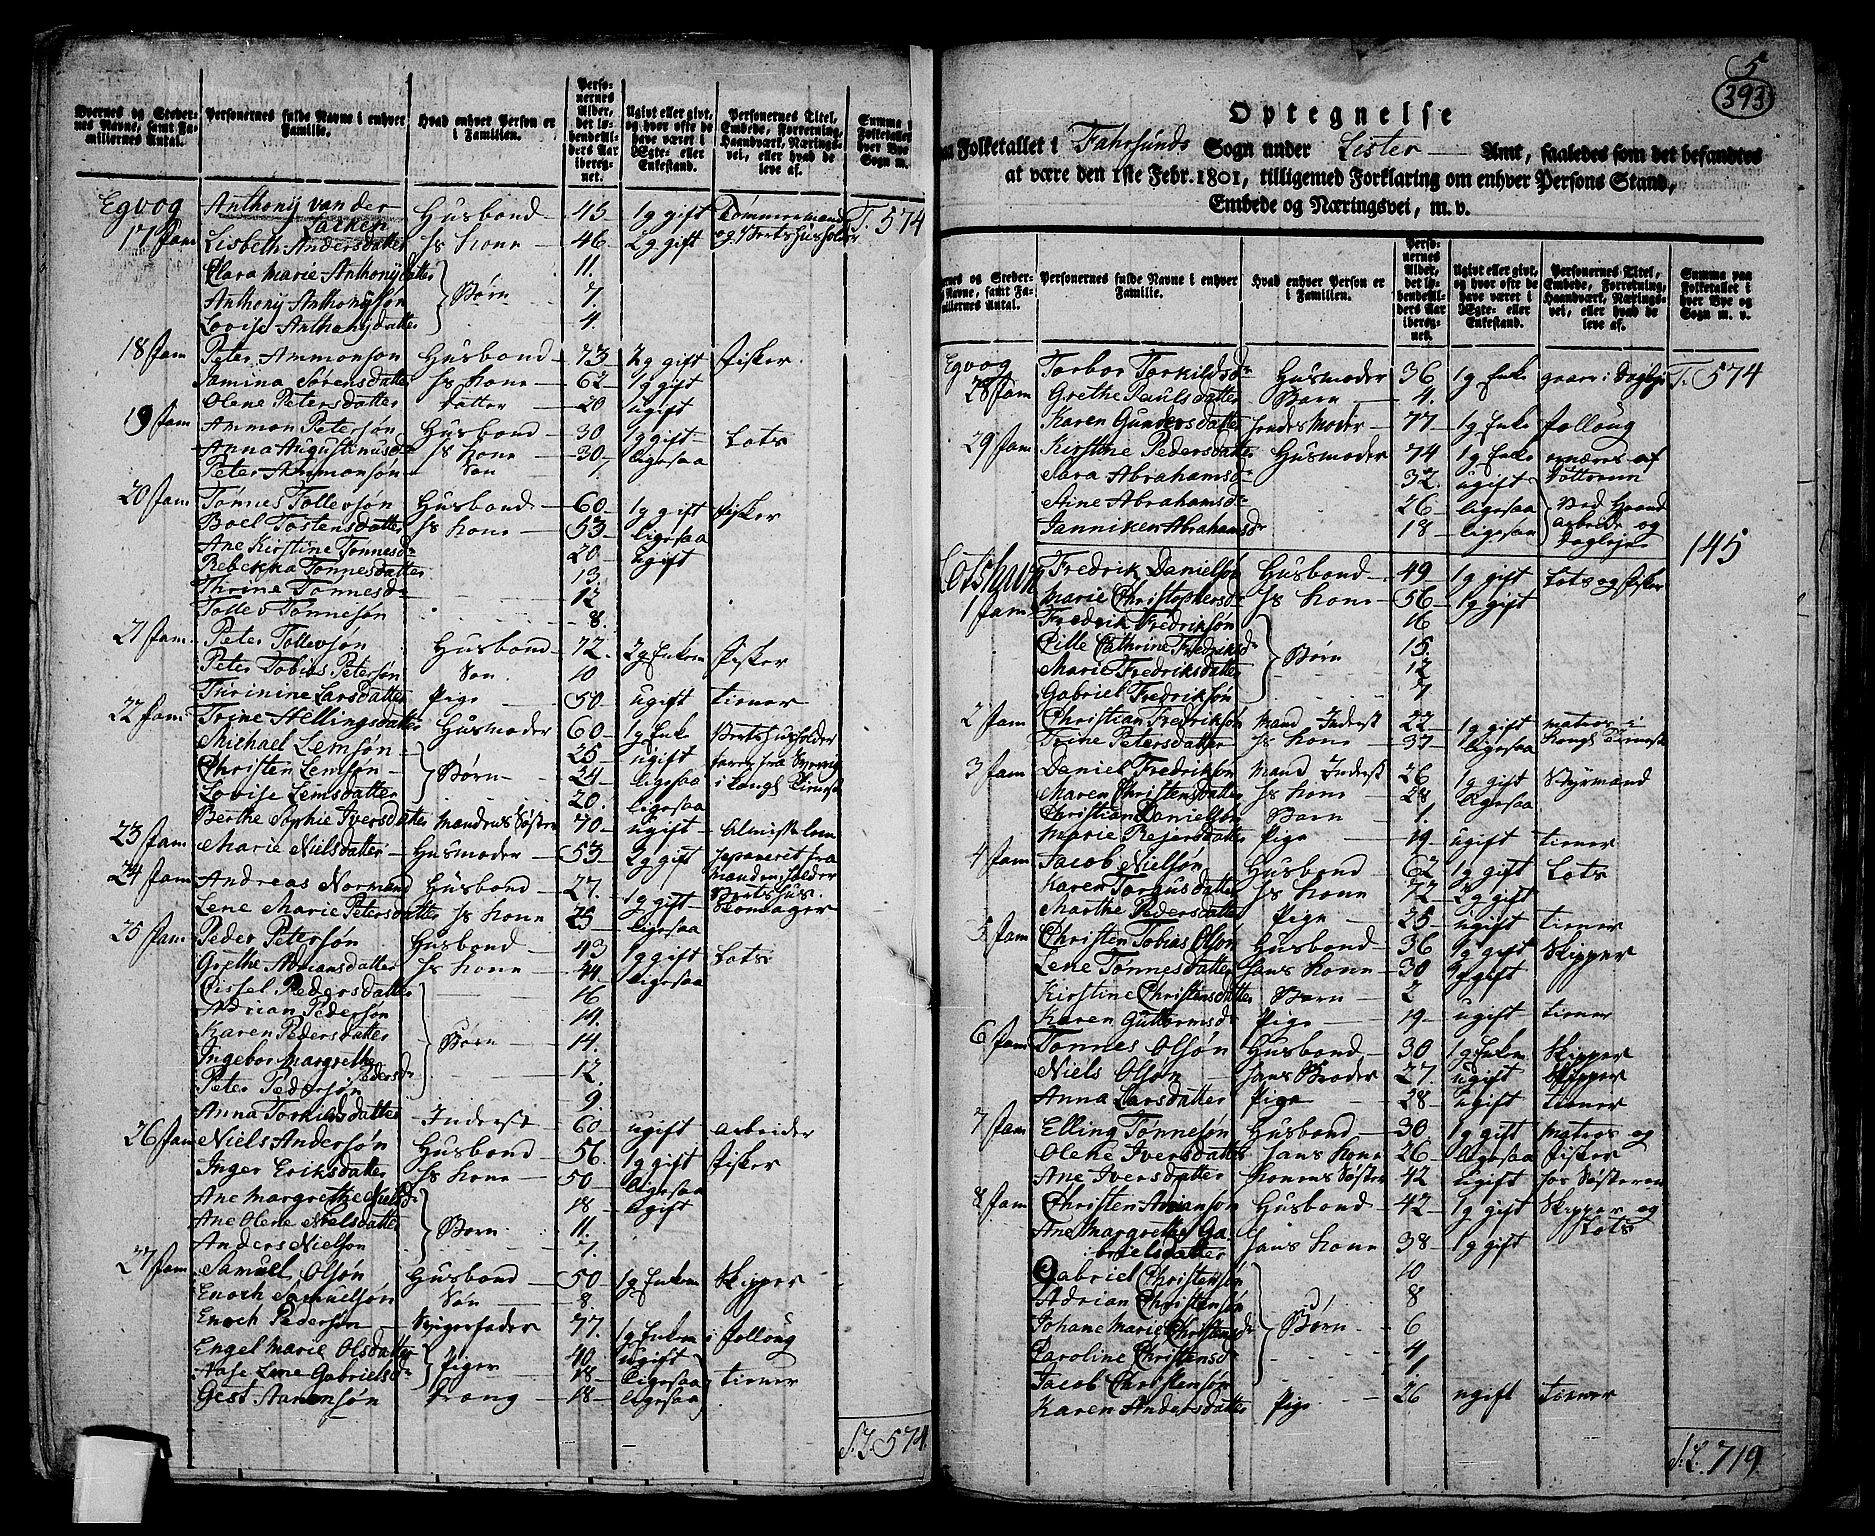 Byernes og Stedernes Navne, samt Familiernes Antal.
Personernes fulde Navne i enhver Familie.
Hvad enhver Person er i Familien.
Personernes Alder, det løbende Alders Aar iberegnet.
Ugivt eller givt, og hvor ofte de have været i Ægte- eller Enkestand.
Personernes Titel, Embede, Forretning, Haandværk, Næringsvei, eller hvad de leve af.
Summa paa Folketallet i hver Bye og Sogn m. v.
Egvog Anthonij van der Lacken Husbond 45 1g gift Tømmermand T. 574
17 fam Lisbeth Andersdatter hs kone 46 2g gift og Vertshusholder
Clara Marie Anthonijdatter 11.
Anthonij Anthonijsøn Børn 7
Lovise Anthonijdatter 4.
18 fam Peter Ammonsøn Husbond 73 2g gift fisker
Jamina Sørensdatter hs kone 62 1g gift
Olene Petersdatter datter 20 ugift
19 fam Ammon Petersøn Husbond 30 1g gift Lots
Anna Augustinusd hs kone 30 ligesaa
Peter Ammonsøn Søn 1
20 fam Tønnes Tollevsøn Husbond 60 1g gift fisker
Boel Tostensdatter hs kone 53 ligesaa
Ane Kirstine Tønnesd 20 ugift
Rebekka Tønnesdatter 13.
Thrine Tønnesd 12
Tollev Tønnesøn 8.
21 fam Peter Tollevsøn Husbond 72. 2g Enkem fisker
Peter Tobias Petersøn Søn 10
Turinine Larsdatter Pige 50 ugift tiener
22 fam Trine Hellingsdatter Husmoder 60 1g Enke Vertshusholder
Michael Lemsøn 25 ugift
Christen Lemsøn Børn 24 ligesaa i kongl. tieneste
Lovise Lemsdatter 20. ligesaa
Berthe Sophie Iversdatter Mandens Søster 70 ugift Almisselem
23 fam Marie Nielsdatter Husmoder 53 2g gift separeret fra Manden, holder Vertshus.
24 fam Andreas Normand Husbond 27. 1g gift Skomager
Lene Marie Petersdatter hs kone 23 ligesaa
25 fam Peder Petersøn Husbond 43 1g gift Lots
Grethe Adriansdatter hs kone 44. ligesaa
Cissel Pedersdatter 16
Adrian Pedersøn 14.
Karen Pedersdatter Børn 14.
Ingebor Margrethe Pedersd 12.
Peter Pedersøn 9.
Anna Torkildsdatter Inderst 60 ugift arbeider
26 fam Niels Andersøn Husbond 56. 1g gift fisker
Inger Eriksdatter hs kone 50 ligesaa
Ane Margrethe Nielsd 18 ugift
Ane Olene Nielsdatter Børn 11.
Anders Nielsøn 7.
27 fam Samuel Olsøn Husbond 50 1g Enkem Skipper
Enoch Samuelsøn Søn 8
Enoch Pedersøn Svigerfader 77. 1g Enkem i follaug
Engel Marie Olsdatter Piger 40 ugift
Aase Lene Gabrielsd 18 ligesaa tiener
Gest Aanensøn dreng 18 ligesaa
S. T. 574.
5
393
Optegnelse
paa Folketallet i Fahrsunds Sogn under Lister Amt, saaledes som det befandtes
at være den 1ste Febr. 1801, tilligemed Forklaring om enhver Persons Stand,
Embede og Næringsvei, m. v.
Byernes og Stedernes Navne, samt Familiernes Antal.
Personernes fulde Navne i enhver Familie.
Hvad enhver Person er i Familien.
Personernes Alder, det løbende Alders Aar iberegnet.
Ugivt eller givt, og hvor ofte de have været i Ægte- eller Enkestand.
Personernes Titel, Embede, Forretning, Haandværk, Næringsvei, eller hvad de leve af.
Summa paa Folketallet i hver Bye og Sogn m. v.
Egvog Torbor Torkildsd Husmoder 36 1g Enke gaaer i Dagleje T. 574
28 fam Grethe Paulsdatter Barn 4.
Karen Gundersdatter hendes Moder 77 1g Enke follaug
29 fam Kirstine Pedersdatter Husmoder 74 1g Enke ernæres af Døttrene
Sara Abrahamsd 32. ugift
Aine Abrahamsd 26 ligesaa Ved Haandarbeide og
Janniken Abrahamsd 18 ligesaa Dagleje
145
Fredrik Danielsøn Husbond 49 1g gift Lots og fisker
1 fam Marie Christophersd hs kone 56 1g gift
Fredrik Fredriksøn 16
Cille Cathrine Fredriksd Børn 15.
Marie Fredriksdatter 12
Gabriel Fredriksøn 7
2 fam Christian Fredriksøn Mand Inderst 22 1g gift matros i
Trine Petersdatter hs kone 37 ligesaa kongl. tieneste
3 fam Daniel Fredriksøn Mand Inderst 26 1g gift Styrmand
Maren Christensdatter hs kone 28 ligesaa
Christian Danielsøn Barn 1.
Marie Rejersdatter Pige 19 ugift tiener
4 fam Jacob Nielsøn Husbond 62 1g gift Lots
Karen Torgusdatter hs kone 72 2g gift
Marthe Pedersdatter Pige 25 ugift tiener
5 fam Christen Tobias Olsøn Husbond 36 1g gift Skipper
Lene Tønnesdatter hans kone 30 2g gift
Kirstine Christensdatter Barn 2
Karen Guttormsd Pige 19 ugift tiener
6 fam Tønnes Olsøn Husbond 30 1g Enkem Skipper
Niels Olsøn hans Broder 27. ugift Skipper
Anna Larsdatter Pige 28 ugift tiener
7 fam Elling Tønnesøn Husbond 30 1g gift matros og
Olene Iversdatter hans kone 26 ligesaa fisker
Ane Iversdatter konens Søster 42 ugift hos Søsteren
8 fam Christen Adriansøn Husbond 42 1g gift Skipper og Lots
Ane Margrethe Gabrielsdatter hans kone 38 1g gift
Gabriel Christensøn 10
Adrian Christensøn 8
Johane Marie Christensd Børn 6
Caroline Christensd 4
Jacob Christensøn 1.
Karen Andersdatter Pige 26 ugift tiener
S. L. 719